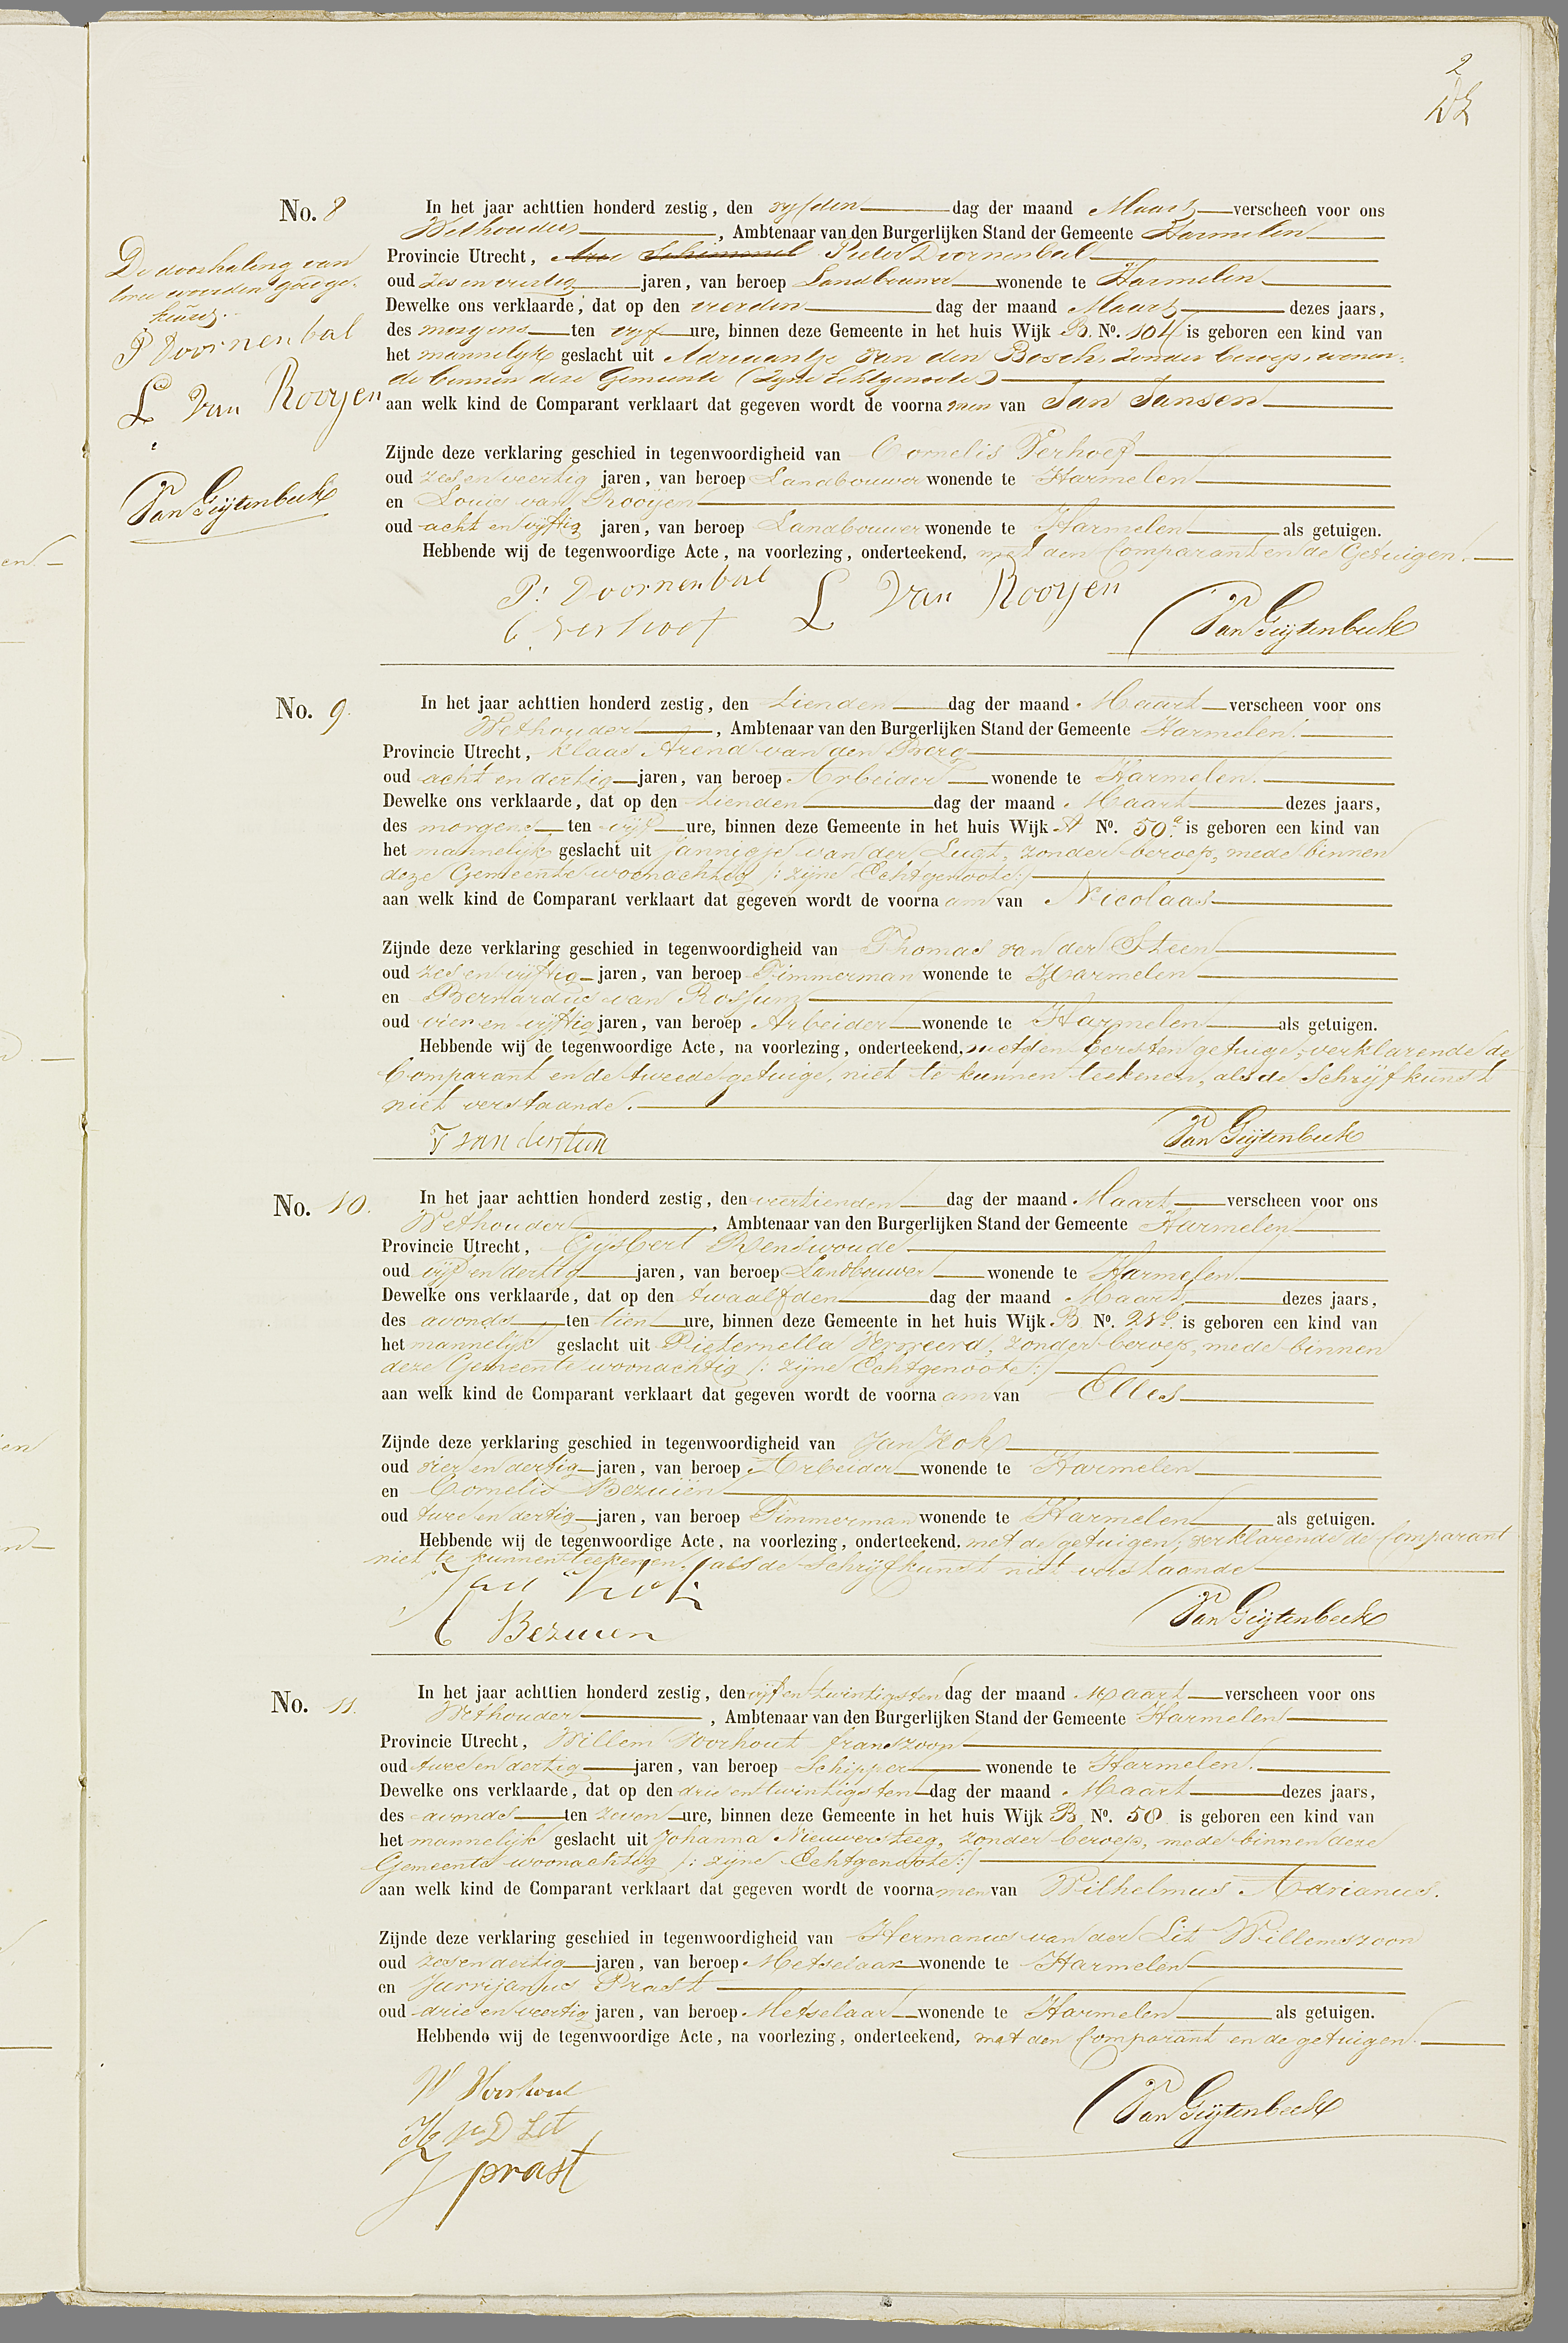 2
No. 8
In het jaar achttien honderd zestig, den vyfden dag der maand Maart verscheen voor ons
Wethouder, Ambtenaar van den Burgerlijken Stand der Gemeente Harmelen
Provincie Utrecht, Arie Schimmel Pieter Doornenbal
oud zes en veertig jaren, van beroep Landbouwer wonende te Harmelen
Dewelke ons verklaarde, dat op den vierden dag der maand Maart dezes jaars,
des morgens ten vyf ure, binnen deze Gemeente in het huis Wijk B. No. 104 is geboren een kind van
het mannelyk geslacht uit Adriaantje van den Bosch, zonder beroep, wonen-
de binnen deze Gemeente (Zyne Echtgenoote)
aan welk kind de Comparant verklaart dat gegeven wordt de voornamen van Jan Jansen
Zijnde deze verklaring geschied in tegenwoordigheid van Cornelis Verhoef
oud zes en veertig jaren, van beroep Landbouwer wonende te Harmelen
en Louis van Rooijen
oud acht en vijftig jaren, van beroep Landbouwer wonende te Harmelen als getuigen.
Hebbende wij de tegenwoordige Acte, na voorlezing, onderteekend, met den Comparant en de Getuigen.
P. Doornenbal L Van Rooyen
C Verhoef Van Geijtenbeek
De doorhaling van
twee woorden goedge-
keurd.
P Doornenbal
L Van Rooyen
Van Geijtenbeek
No. 9.
In het jaar achttien honderd zestig, den tienden dag der maand Maart verscheen voor ons
Wethouder, Ambtenaar van den Burgerlijken Stand der Gemeente Harmelen.
Provincie Utrecht, Klaas Arend van den Berg
oud acht en dertig jaren, van beroep Arbeider wonende te Harmelen.
Dewelke ons verklaarde, dat op den tienden dag der maand Maart dezes jaars,
des morgens ten vijf ure, binnen deze Gemeente in het huis Wijk A No. 50a is geboren een kind van
het mannelijk geslacht uit Jannigje van der Lugt, zonder beroep, mede binnen
deze Gemeente woonachtig /: zijne Echtgenoote :/
aan welk kind de Comparant verklaart dat gegeven wordt de voornaam van Nicolaas
Zijnde deze verklaring geschied in tegenwoordigheid van Thomas van der Steen
oud zes en vijftig jaren, van beroep Timmerman wonende te Harmelen
en Bernardus van Rossum
oud vier en vijftig jaren, van beroep Arbeider wonende te Harmelen als getuigen.
Hebbende wij de tegenwoordige Acte, na voorlezing, onderteekend, met den Eersten getuige, verklarende de
Comparant en de tweede getuige, niet te kunnen teekenen, als de Schrijfkunst
niet verstaande.
T van der Steen Van Geijtenbeek
No. 10.
In het jaar achttien honderd zestig, den veertienden dag der maand Maart verscheen voor ons
Wethouder, Ambtenaar van den Burgerlijken Stand der Gemeente Harmelen
Provincie Utrecht, Gijsbert Renswoude
oud vijf en dertig jaren, van beroep Landbouwer wonende te Harmelen.
Dewelke ons verklaarde, dat op den twaalfden dag der maand Maart dezes jaars,
des avonds ten tien ure, binnen deze Gemeente in het huis Wijk B No. is geboren een kind van
het mannelijk geslacht uit Pieternella Verweerd, zonder beroep, mede binnen
deze Gemeente woonachtig /: zijne Echtgenoote :/
aan welk kind de Comparant verklaart dat gegeven wordt de voornaam van Elles
Zijnde deze verklaring geschied in tegenwoordigheid van Jan Kok
oud vier en dertig jaren, van beroep Arbeider wonende te Harmelen
en Cornelis Bezuien
oud twee en dertig jaren, van beroep Timmerman wonende te Harmelen als getuigen.
Hebbende wij de tegenwoordige Acte, na voorlezing, onderteekend, met de getuigen, verklarende de Comparant
niet te kunnen teekenen, als de Schrijfkunst niet verstaande
Jan Kok
C Bezuien Van Geijtenbeek
No. 11.
In het jaar achttien honderd zestig, den vijf en twintigsten dag der maand Maart verscheen voor ons
Wethouder, Ambtenaar van den Burgerlijken Stand der Gemeente Harmelen
Provincie Utrecht, Willem Voorhout Franszoon
oud twee en dertig jaren, van beroep Schipper wonende te Harmelen.
Dewelke ons verklaarde, dat op den drie en twintigsten dag der maand Maart dezes jaars,
des avonds ten zeven ure, binnen deze Gemeente in het huis Wijk B No. 58 is geboren een kind van
het mannelijk geslacht uit Johanna Nieuwersteeg, zonder beroep, mede binnen deze
Gemeente woonachtig /: zijne Echtgenoote :/
aan welk kind de Comparant verklaart dat gegeven wordt de voornamen van Wilhelmus Adrianus.
Zijnde deze verklaring geschied in tegenwoordigheid van Hermanus van der Lit Willemszoon
oud zes en dertig jaren, van beroep Metselaar wonende te Harmelen
en Jurrijanus Prast
oud drie en veertig jaren, van beroep Metselaar wonende te Harmelen als getuigen.
Hebbende wij de tegenwoordige Acte, na voorlezing, onderteekend, met den Comparant en de getuigen.
W Voorhout
H v D Lit Van Geijtenbeek
J prast